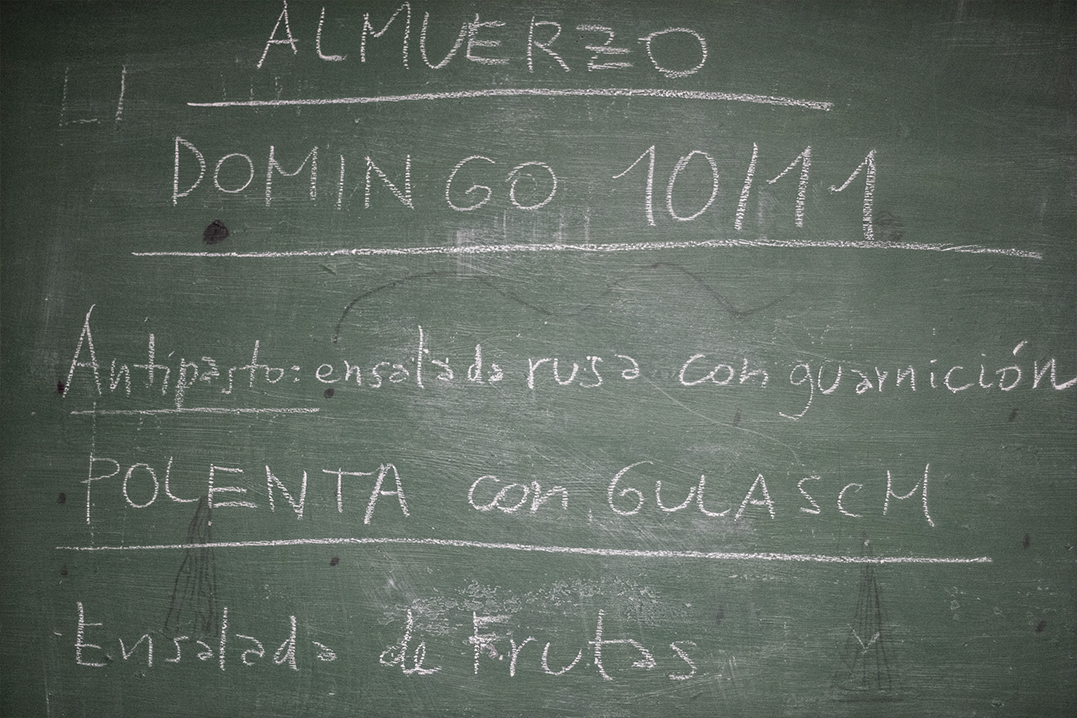 ALMUERZO
DOMINGO 10/11
Antipasto: ensalada rusa con guarnición
POLENTA con GULASCH
Ensalada de Frutas